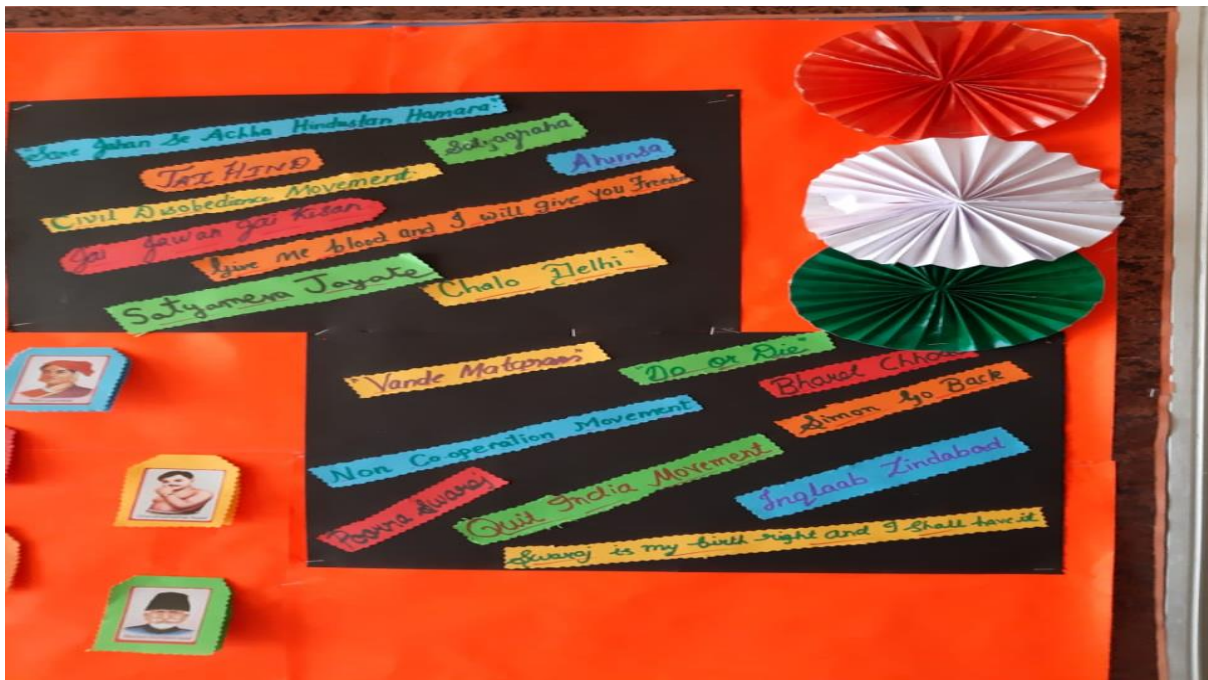 "Sare Jahan Se Achha Hindustan Hamara"
Satyagraha
JAI HIND
Ahimsa
Civil Disobedience Movement
Jai Jawan Jai Kisan
Give me blood and I will give you Freedom
Satyameva Jayate
Chalo Delhi"
"Vande Mataram"
"Do or Die"
Bharat Chhodo
Simon Go Back
Non Co-operation Movement
Quit India Movement
Inqlaab Zindabad
Poorna Swaraj
Swaraj is my birth right and I shall have it